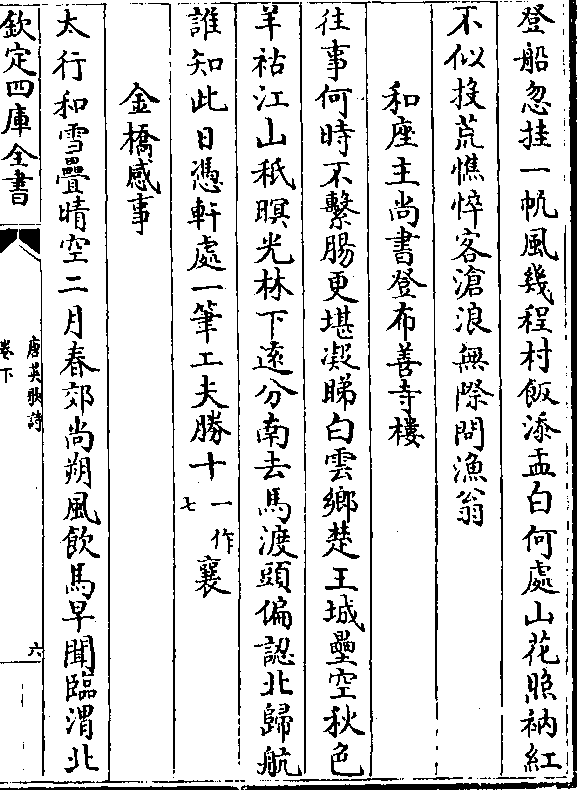 登船忽挂一帆風幾程村飯添盂白何處山花照衲紅
不似投荒憔悴客滄浪無際問漁翁
和座主尚書登布善寺樓
往事何時不繫腸更堪凝睇白雲鄉楚王城壘空秋色
羊祜江山秪暝光林下遠分南去馬渡頭偏認北歸航
誰知此日憑軒處一筆工夫勝十一作七襄
金橋感事
太行和雪疊晴空二月春郊尚朔風飲馬早聞臨渭北
欽定四庫全書
唐英歌詩
卷下
六